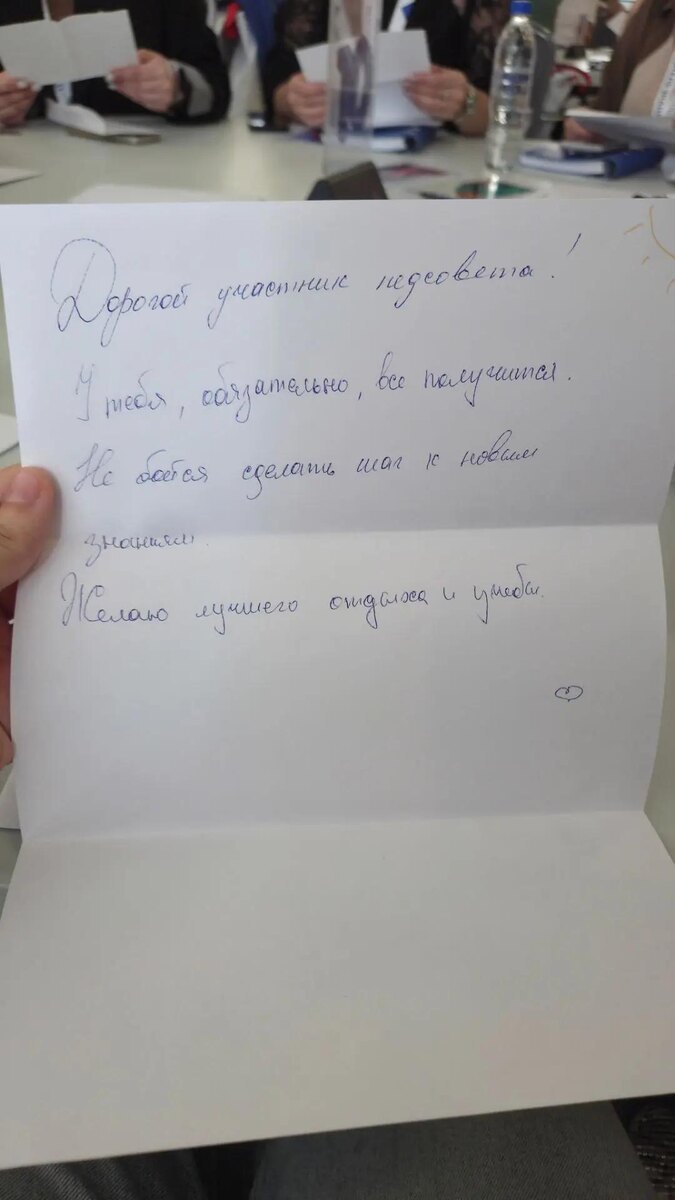 Дорогой участник педсовета!
У тебя, обязательно, все получится.
Не бойся сделать шаг к новым
знаниям.
Желаю лучшего отдыха и учебы.